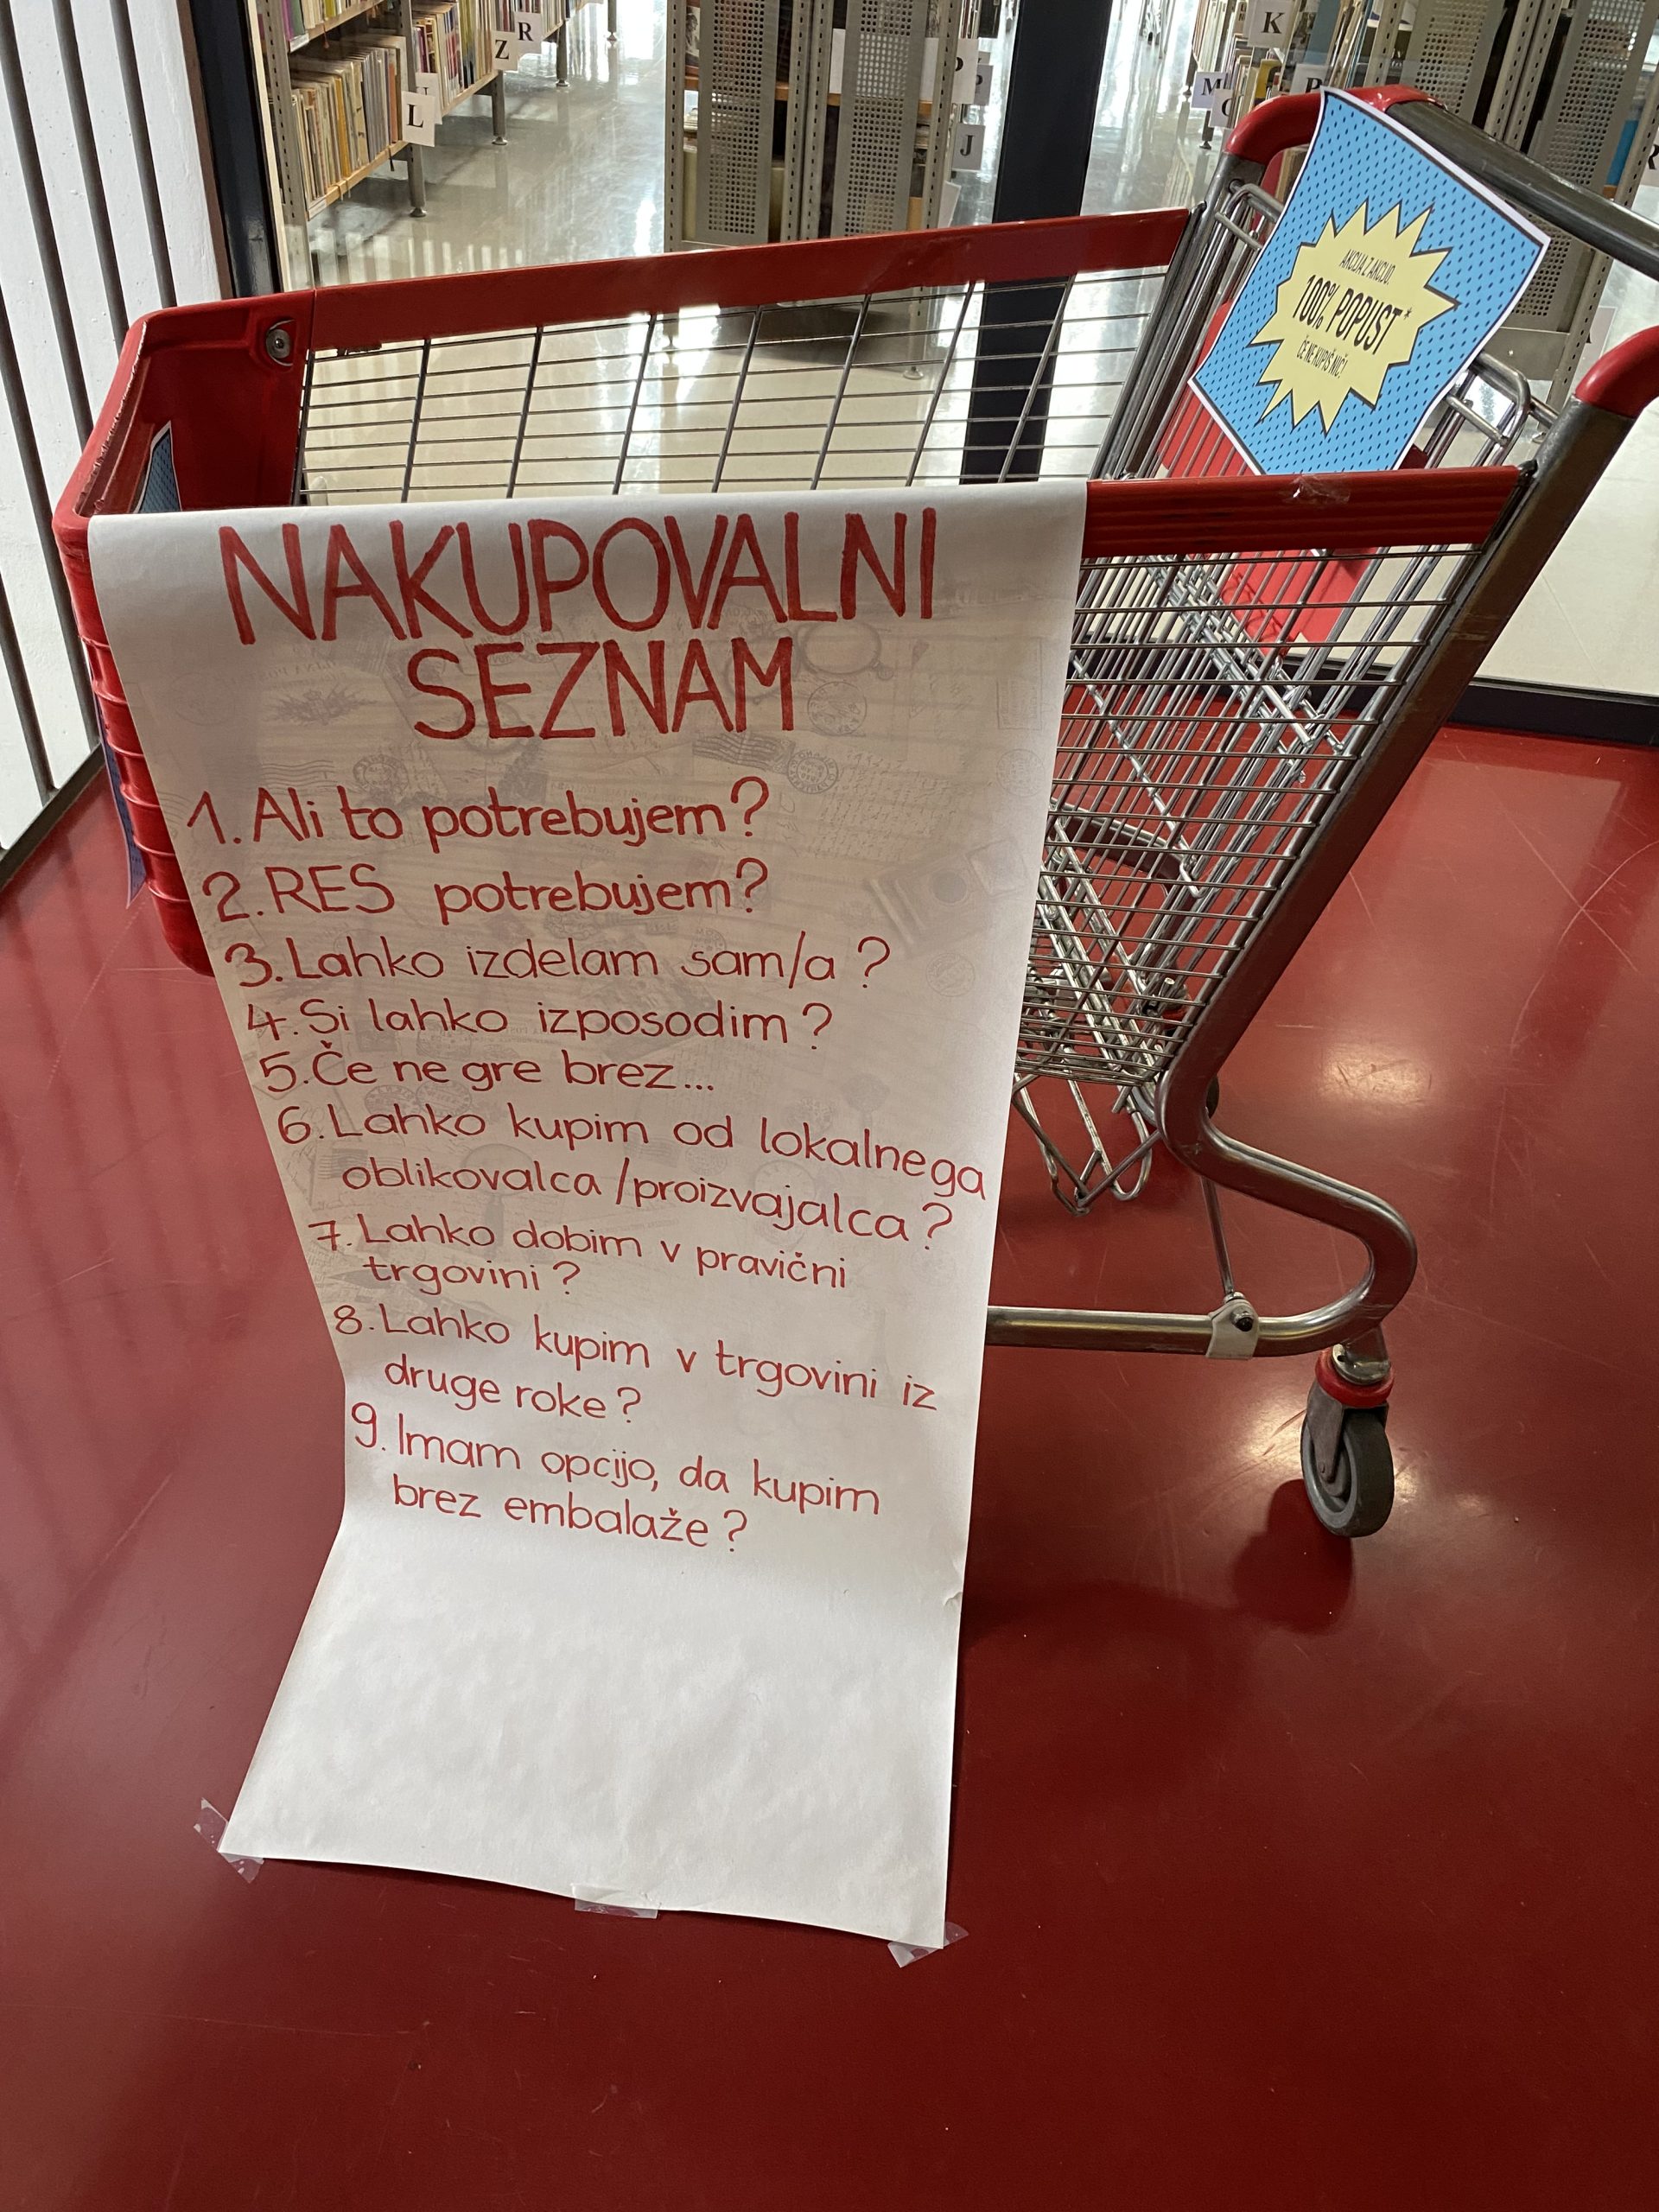 NAKUPOVALNI
SEZNAM
1. Ali to potrebujem?
2. RES potrebujem?
3. Lahko izdelam sam/a?
4. Si lahko izposodim?
5. Če ne gre brez...
6. Lahko kupim od lokalnega
oblikovalca/proizvajalca?
7. Lahko dobim v pravični
trgovini?
8. Lahko kupim v trgovini iz
druge roke?
9. Imam opcijo, da kupim
brez embalaže?
AKCIJA Z AKCIJO:
100% POPUST*
ČE NE KUPIŠ NIČ!
Z
R
L
P
J
K
M